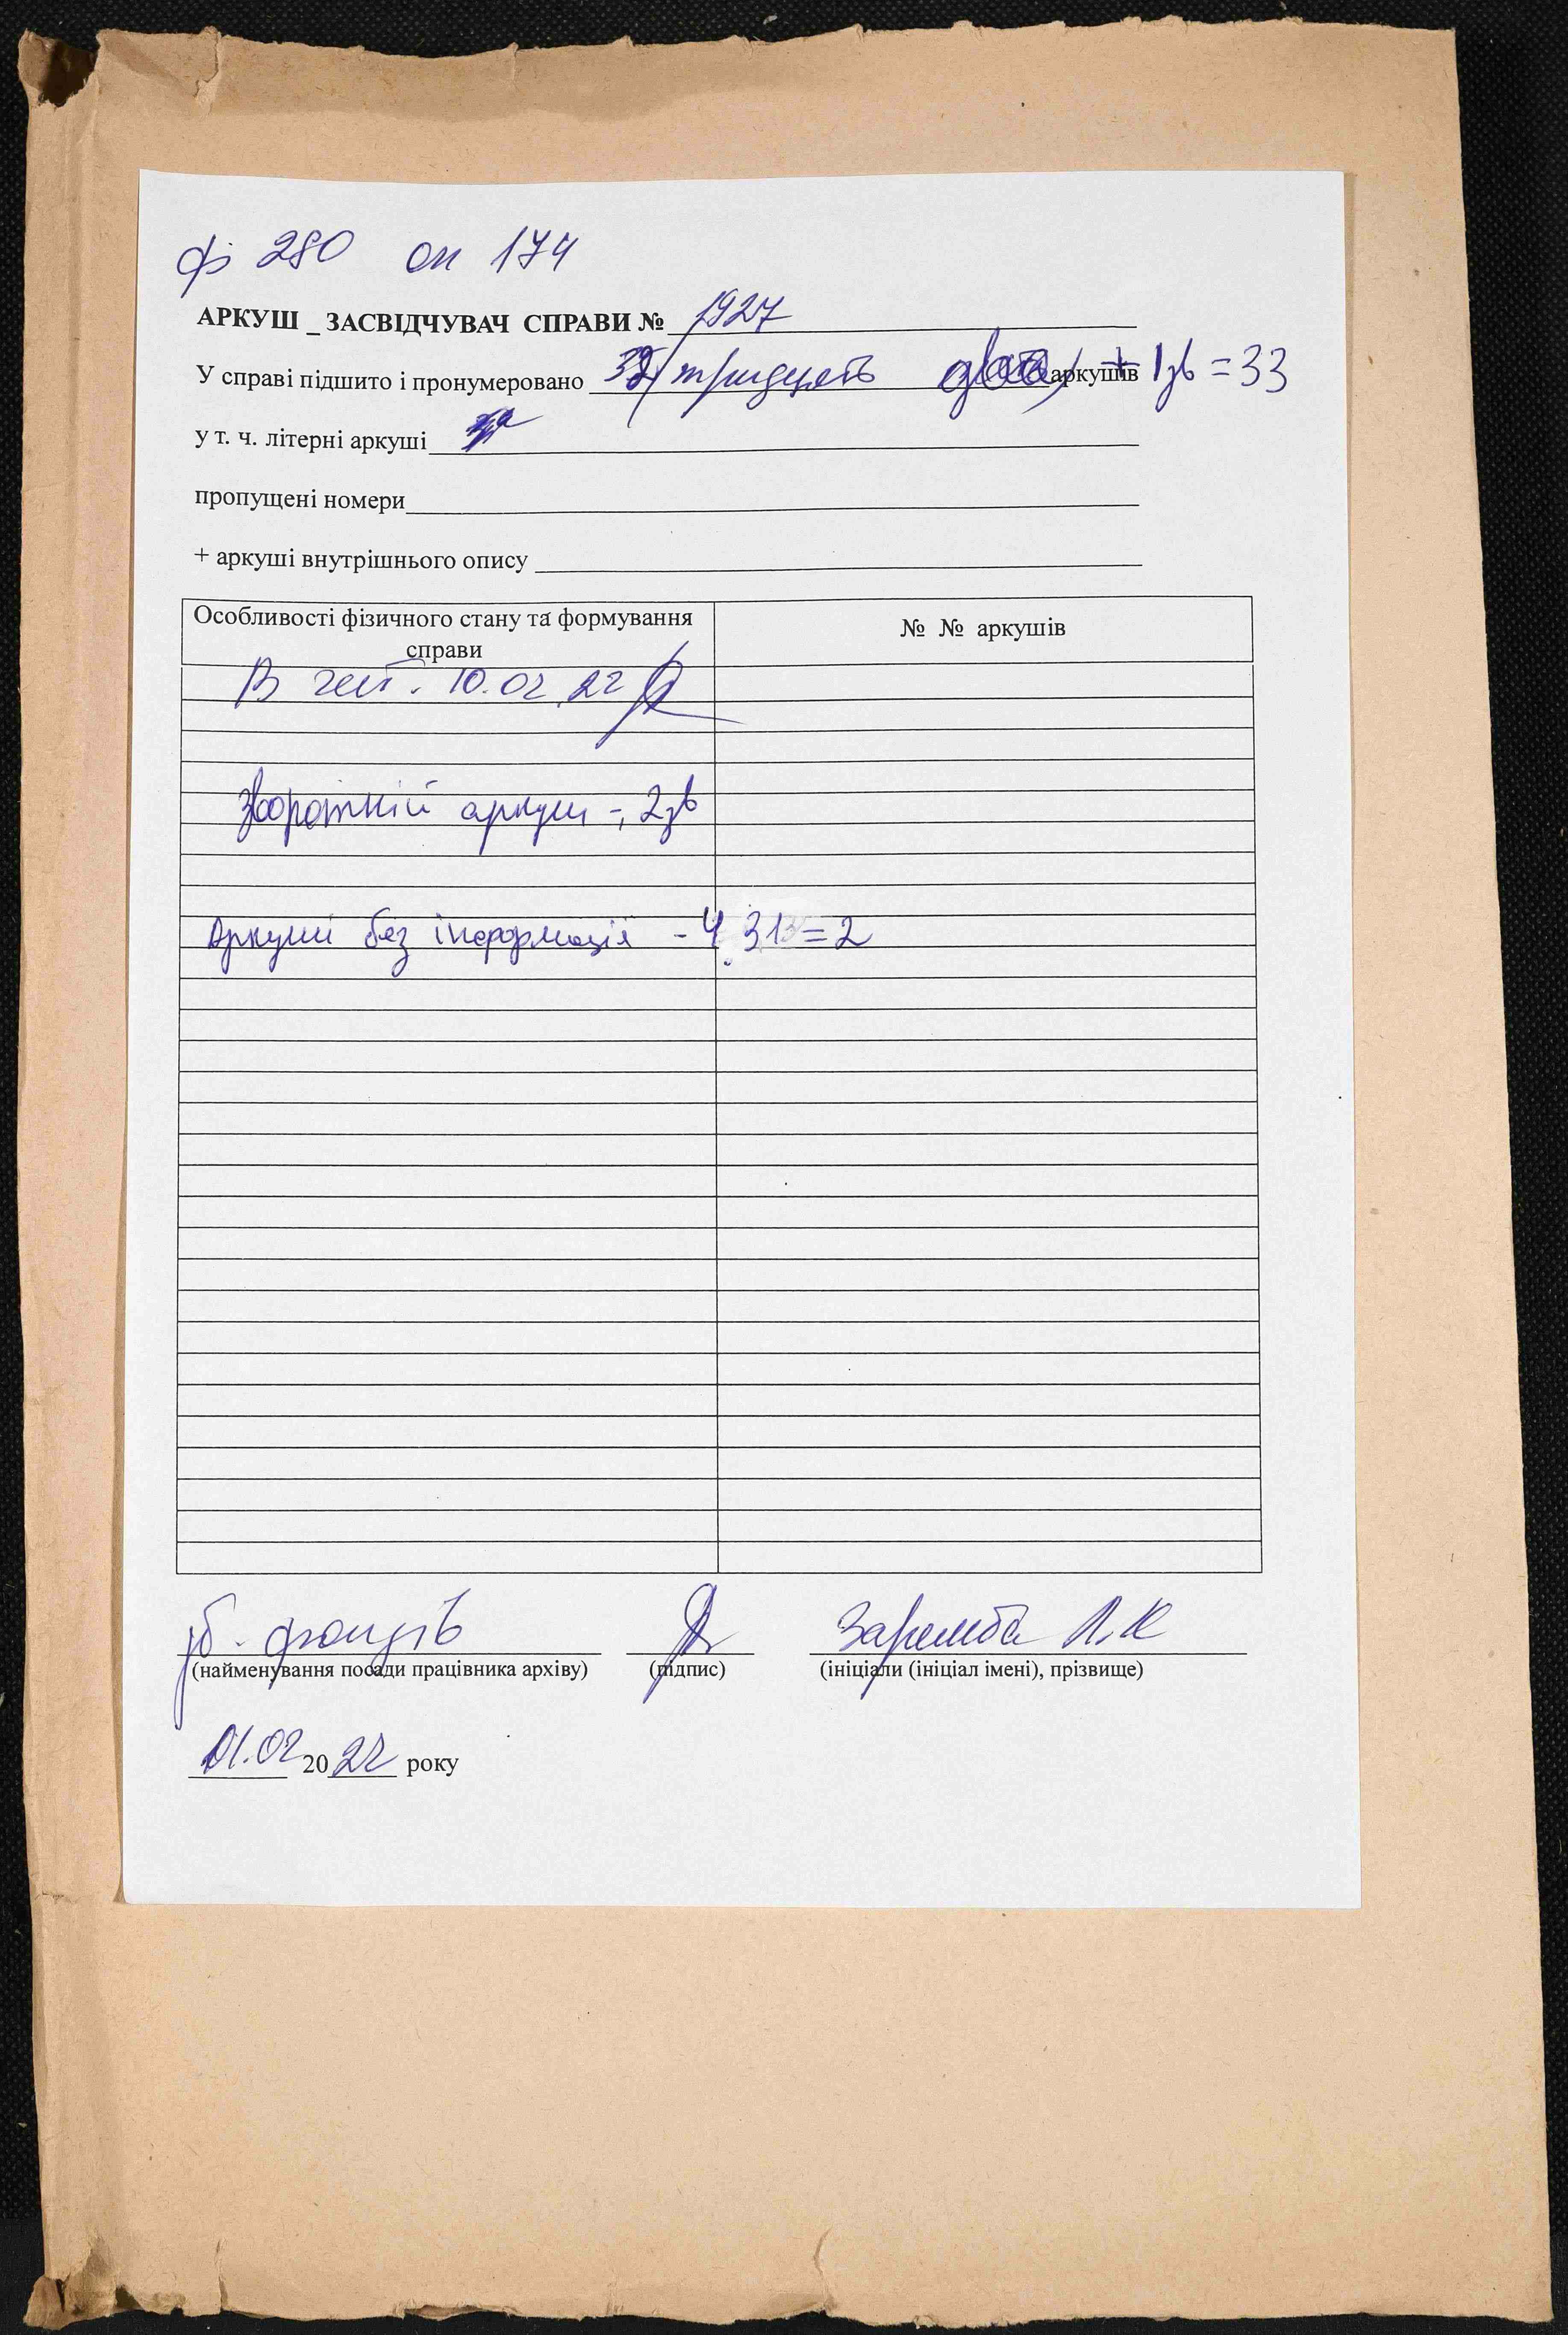 ф 280 оп 174
АРКУШ _ ЗАСВІДЧУВАЧ СПРАВИ № 1927
У справі підшито і пронумеровано 32 /тридцять два/ аркушів + 1зв = 33
у т. ч. літерні аркуші
пропущені номери
+ аркуші внутрішнього опису
Особливості фізичного стану та формування справи
№ № аркушів
В чит. 10.02.22
Зворотній аркуш -, 2зв
Аркуші без інформації - 4, 31 = 2
зб. фондів
Заремба Л.К
(найменування посади працівника архіву) (підпис) (ініціали (ініціал імені), прізвище)
01.02 2022 року